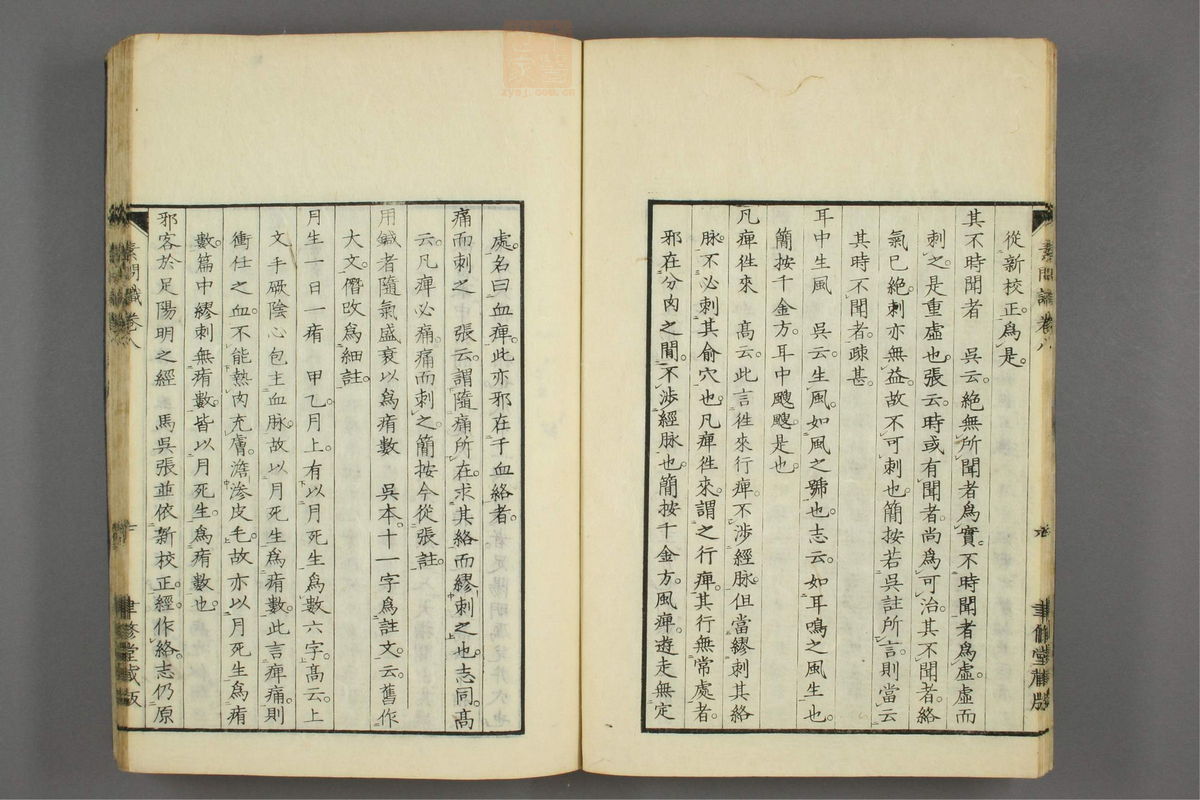 從新校正。爲是。
其不時聞者　吳云。絕無所聞者爲實。不時聞者爲虛。虛而
刺之。是重虛也。張云。時或有聞者。尚爲可治。其不聞者。絡
氣已絕。刺亦無益。故不可刺也。簡按若吳註所言。則當云
其時不聞者。疎甚。
耳中生風　吳云。生風。如風之號也。志云。如耳鳴之風生也。
簡按千金方。耳中颼颼。是也
凡痺徃來　髙云。此言徃來行痺。不涉經脉。但當繆刺其絡
脉。不必刺其俞穴也。凡痺徃來。謂之行痺。其行無常處者。
邪在分肉之閒。不涉經脉也。簡按千金方。風痺遊走無定
素問識 卷八
聿修堂藏版
處。名曰血痺。此亦邪在于血絡者。
痛而刺之　張云。謂隨痛所在。求其絡而繆刺之也。志同。髙
云。凡痺必痛。痛而刺之。簡按今從張註。
用鍼者隨氣盛衰以爲痏數　吳本。十一字爲註文。云。舊作
大文。僭改爲細註。
月生一日一痏　甲乙。月上。有以月死生爲數六字。髙云。上
文手厥陰心包主血脉。故以月死生爲痏數。此言痺痛。則
衝任之血。不能熱肉充膚。澹滲皮毛。故亦以月死生爲痏
數。篇中繆刺無痏數。皆以月死生。爲痏數也。
邪客於足陽明之經　馬吳張並依新校正。經。作絡。志仍原
素問識 卷八
聿修堂藏版
zyej.com.cn